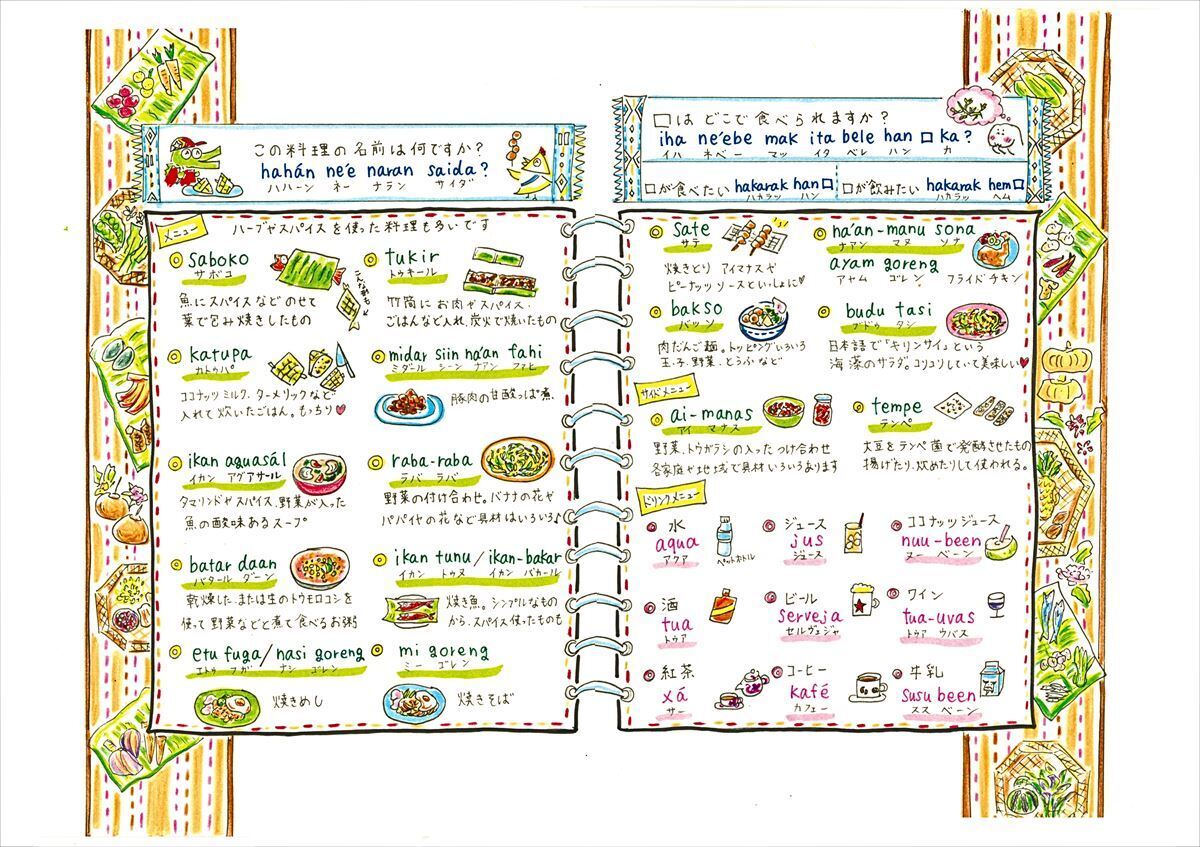 この料理の名前は何ですか？
hahán ne'e naran saida?
ハハーン ネー ナラン サイダ
メニュー
ハーブやスパイスを使った料理も多いです
saboko
サボコ
魚にスパイスなどのせて
葉で包み焼きしたもの
こんな形も
tukir
トゥキール
竹筒にお肉やスパイス、
ごはんなど入れ炭火で焼いたもの
katupa
カトゥパ
ココナッツミルク、ターメリックなど
入れて炊いたごはん。もっちり♥
midar siin na'an fahi
ミダール シーン ナアン ファヒ
豚肉の甘酸っぱ煮。
ikan aguasál
イカン アグアサール
タマリンドやスパイス、野菜が入った
魚の酸味あるスープ
raba-raba
ラバ ラバ
野菜の付け合わせ。バナナの花や
パパイヤの花など具材はいろいろ♪
batar daan
バタール ダーン
乾燥した、または生のトウモロコシを
使って野菜などと煮て食べるお粥
ikan tunu/ikan-bakar
イカン トゥヌ イカン バカール
焼き魚。シンプルなもの
から、スパイス使ったものも
etu fuga/nasi goreng
エトゥ フガ ナシ ゴレン
焼きめし
mi goreng
ミー ゴレン
焼きそば
□は どこで食べられますか？
iha ne'ebe mak ita bele han □ ka?
イハ ネベー マッ イタ ベレ ハン カ
□が食べたい hakarak han□
ハカラッ ハン
□が飲みたい hakarak hem□
ハカラッ ヘム
sate
サテ
焼きとり アイマナスや
ピーナッツソースといっしょに♥
na'an-manu sona
ナアン マヌ ソナ
ayam goreng
アヤム ゴレン フライドチキン
bakso
バッソ
肉だんご麺。トッピングいろいろ
玉子、野菜、とうふなど
budu tasi
ブドゥ タシ
日本語で「キリンサイ」という
海藻のサラダ。コリコリしていて美味しい♥
サイドメニュー
ai-manas
アイ マナス
野菜、トウガラシの入ったつけ合わせ
各家庭や地域で具材いろいろあります
tempe
テンペ
大豆をテンペ菌で発酵させたもの
揚げたり、炒めたりして使われる。
ドリンクメニュー
水
aqua
アクア
ペットボトル
ジュース
jus
ジュース
ココナッツジュース
nuu-been
ヌー ベーン
酒
tua
トゥア
ビール
serveja
セルヴェジャ
ワイン
tua-uvas
トゥア ウバス
紅茶
xá
サー
コーヒー
kafé
カフェー
牛乳
susu been
スス ベーン